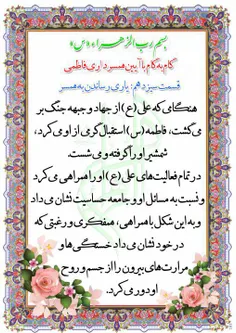 بسم رب الزهراء (س)
گام به گام با آیین همسرداری فاطمی
قسمت سیزدهم: یاری رساندن به همسر
هنگامی که علی (ع) از جهاد و جبهه جنگ بر
می گشت، فاطمه (س) استقبال گرمی از او می کرد،
شمشیر او را گرفته و می شست.
در تمام فعالیت های علی (ع) او را همراهی می کرد
و نسبت به مسائل او و جامعه حساسیت نشان می داد
و به این شکل با همراهی، همفکری و رغبتی که
در خود نشان می داد خستگی ها و
مرارت های بیرون را از جسم و روح
او دور می کرد.